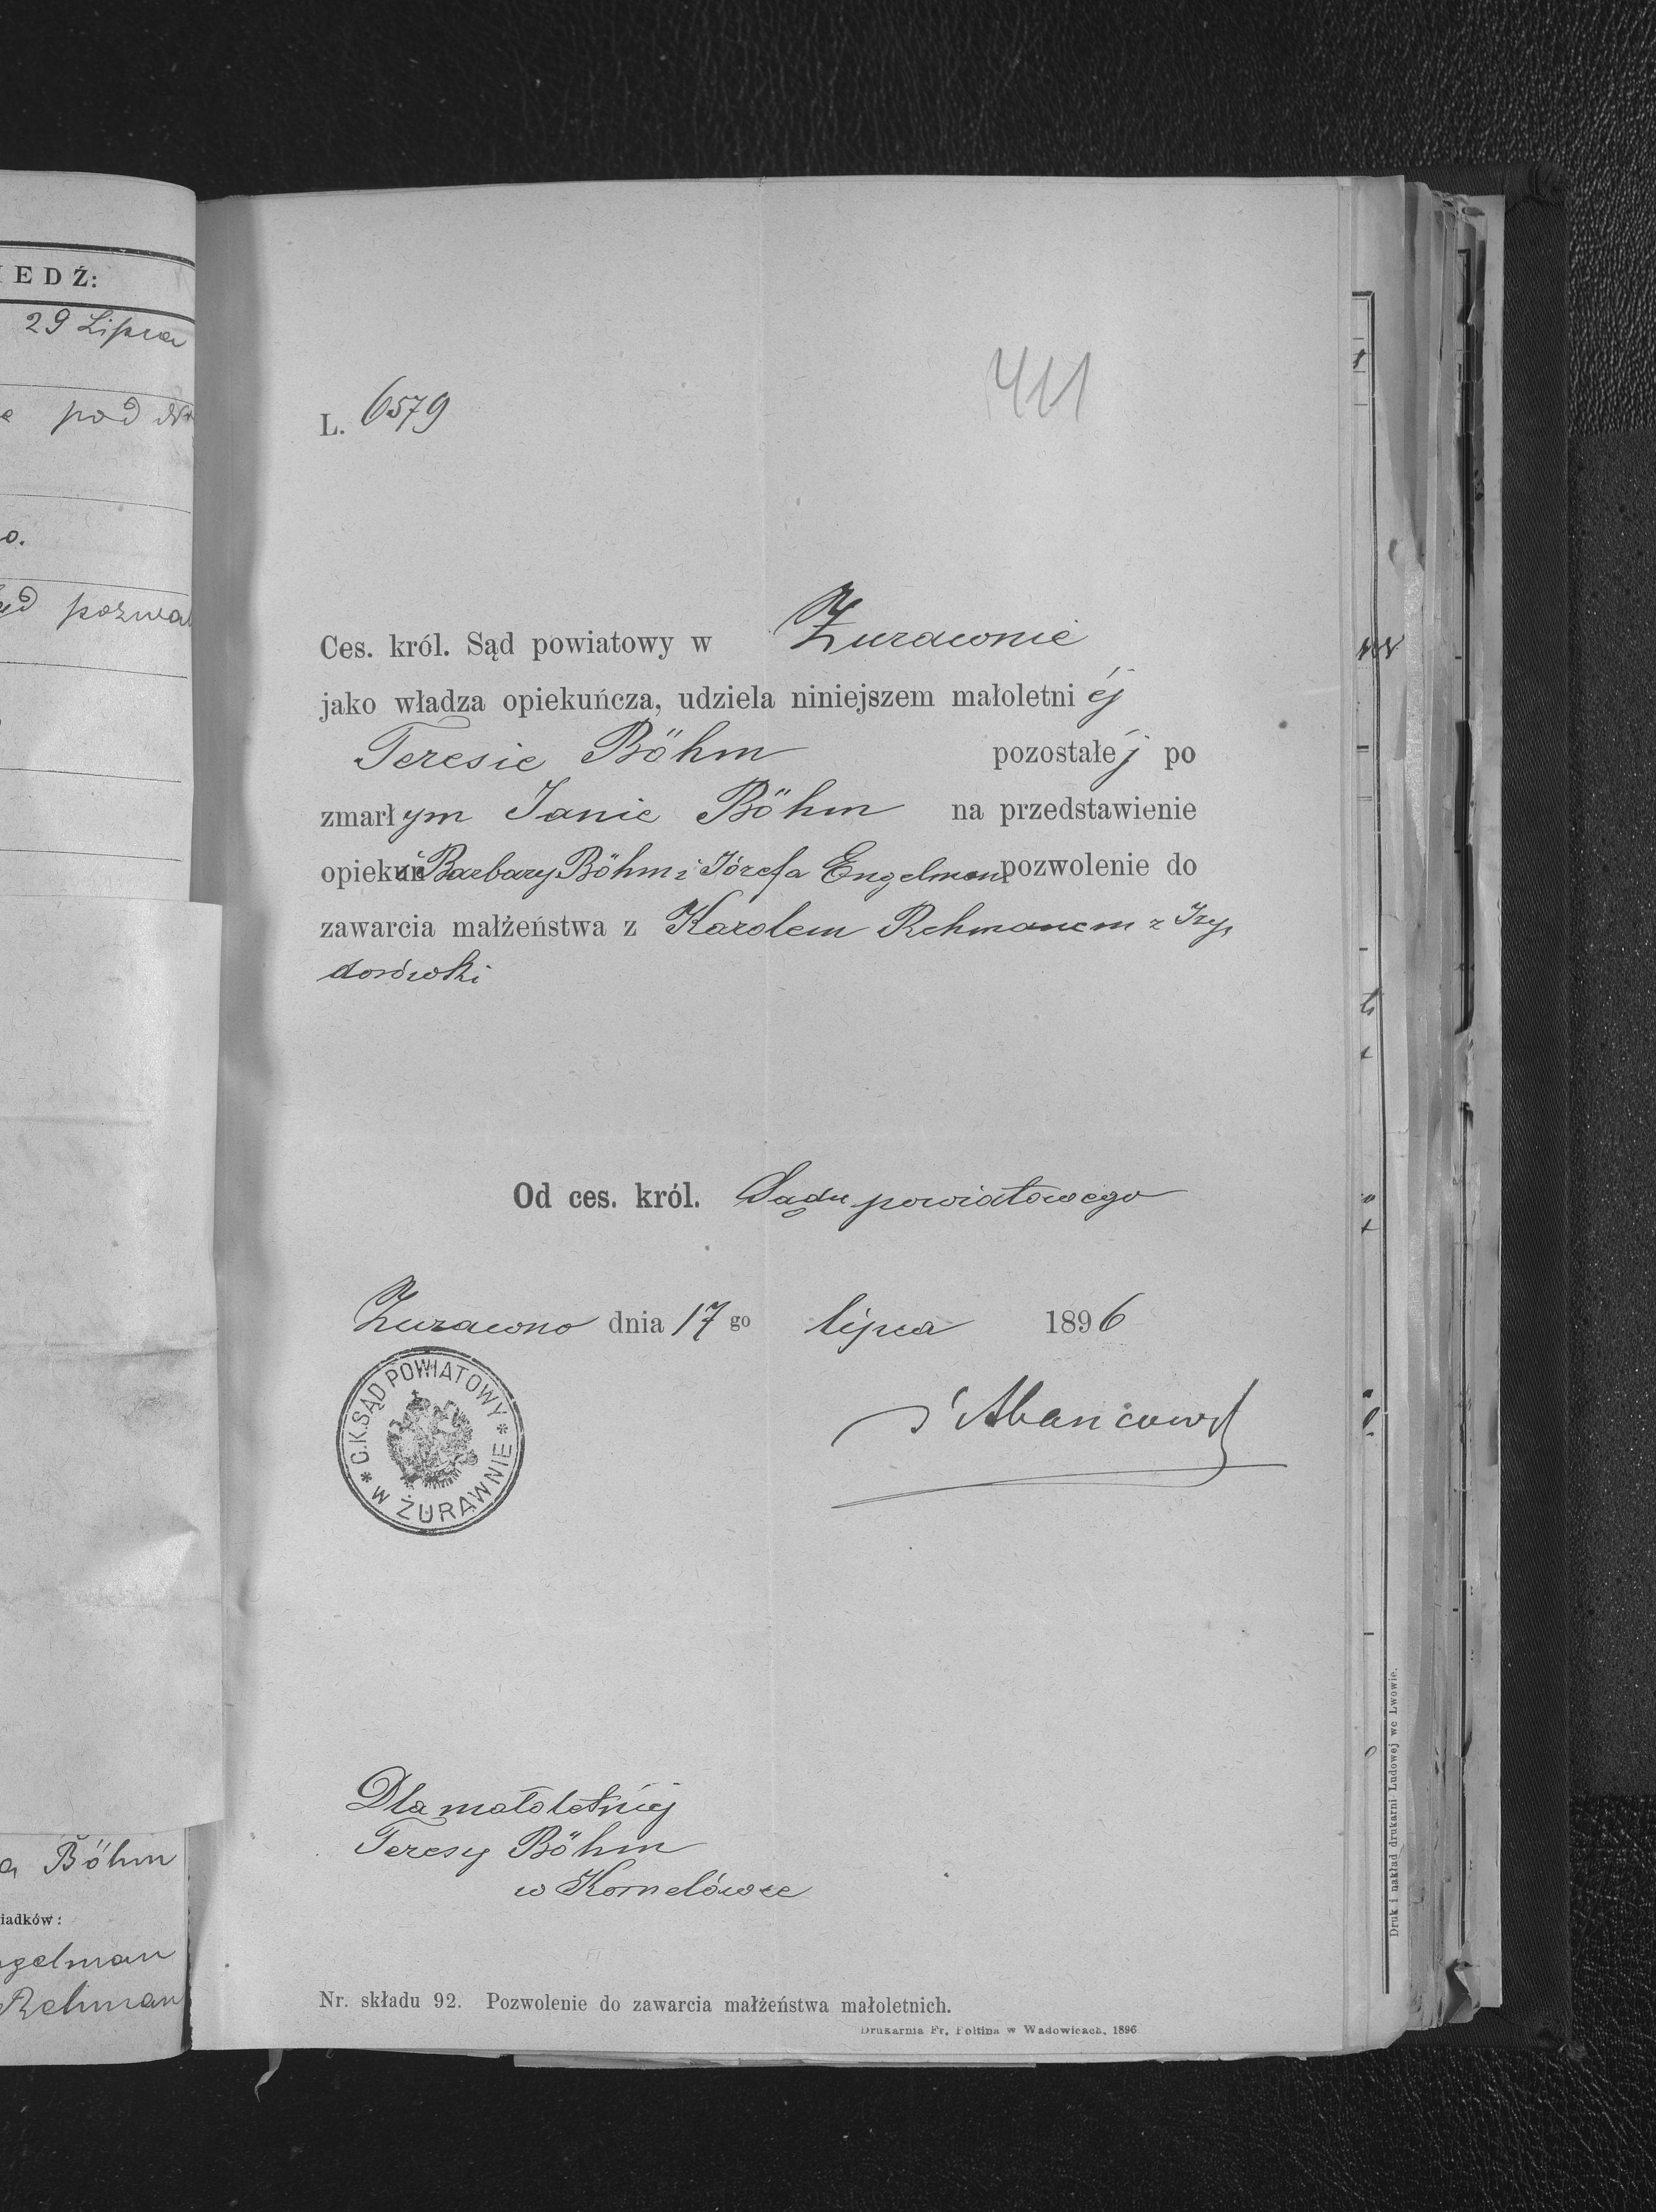 IEDŹ:
29 Lipca
pod Nr
o.
pozwal
a Böhm
iadków:
ngelman
Rehman
411
L. 6579
Ces. król. Sąd powiatowy w Żurawnie
jako władza opiekuńcza, udziela niniejszem małoletniéj
Teresie Böhm pozostałéj po
zmarłym Janie Böhm na przedstawienie
opiekuń Barbary Böhm i Józefa Engelman pozwolenie do
zawarcia małżeństwa z Karolem Rehmanem z Izy-
dorówki
Od ces. król. Sądu powiatowego
Żurawno dnia 17 go lipca 1896
C.K.SĄD POWIATOWY
W ŻURAWNIE
Dla małoletniéj
Teresy Böhm
w Kornelówce
Nr. składu 92. Pozwolenie do zawarcia małżeństwa małoletnich.
Drukarnia Fr. Foltina w Wadowicach, 1896
Druk i nakład drukarni Ludowej we Lwowie.